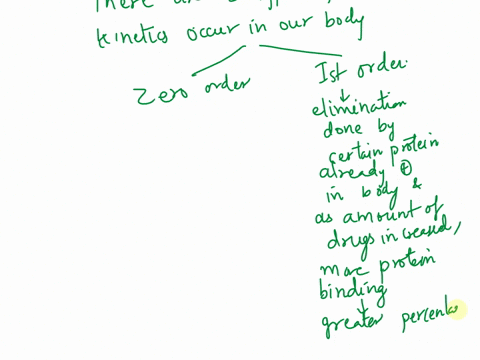 There are
kinetics occur in our body
Zero order
Ist order.
elimination
done by
certain protein
already ⊕
in body &
as amount of
drugs increased,
more protein
binding
greater percenta